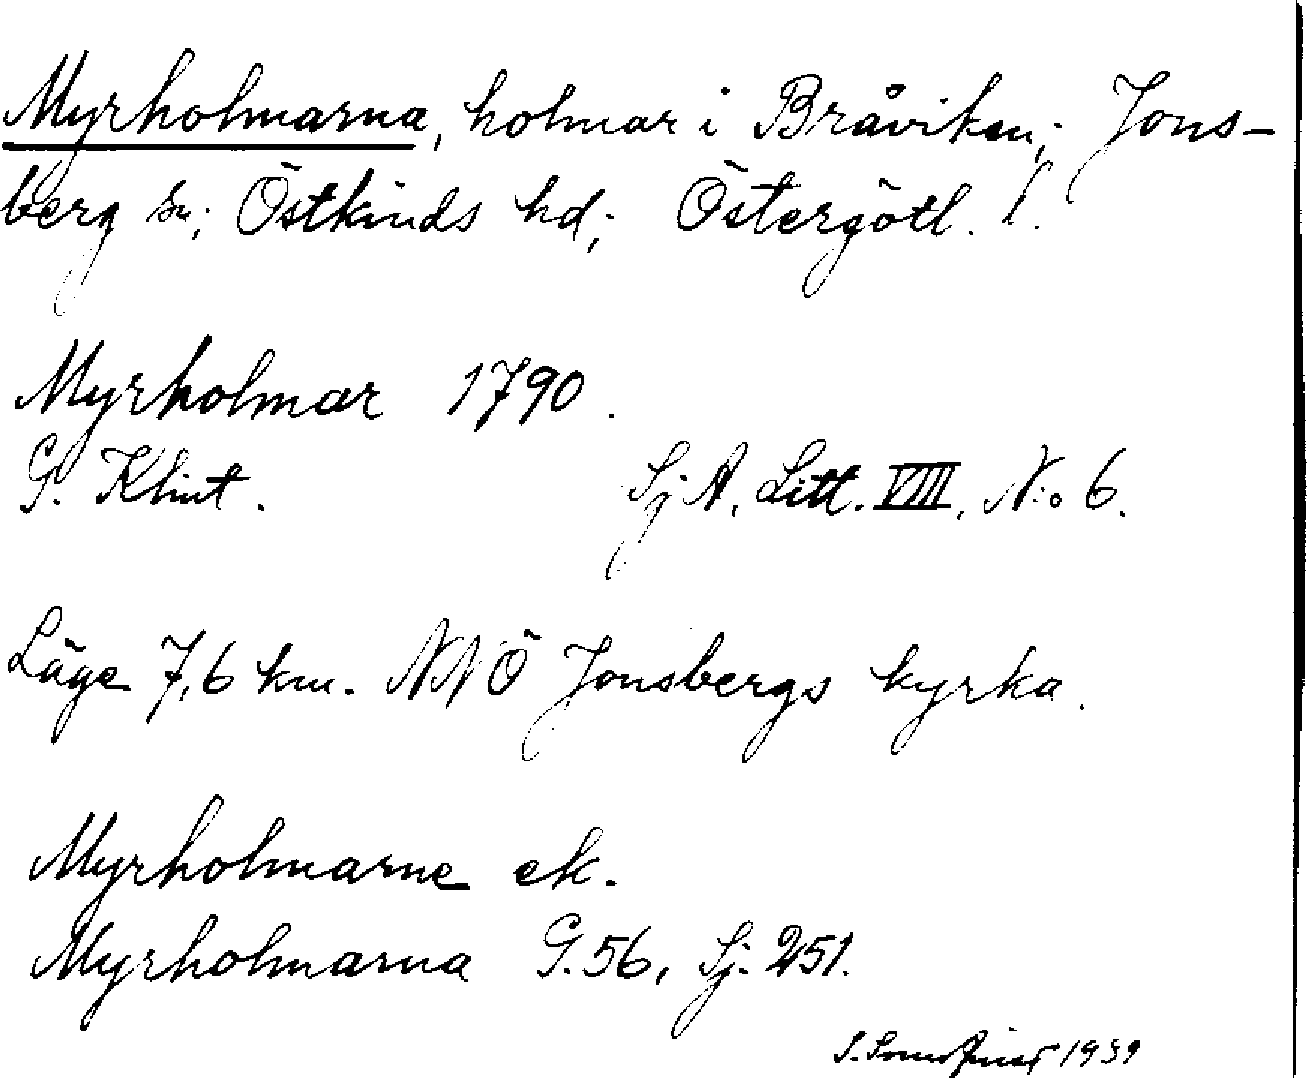 Myrholmarna, holmar i Bråviken; Jons-
berg sn; Östkinds hd; Östergötl. l.
Myrholmar 1790.
G. Klint. Sj. A. Litt. VIII, No 6.
Läge 7,6 km. NNÖ Jonsbergs kyrka.
Myrholmarne ek.
Myrholmarna G. 56, Sj. 251.
1939